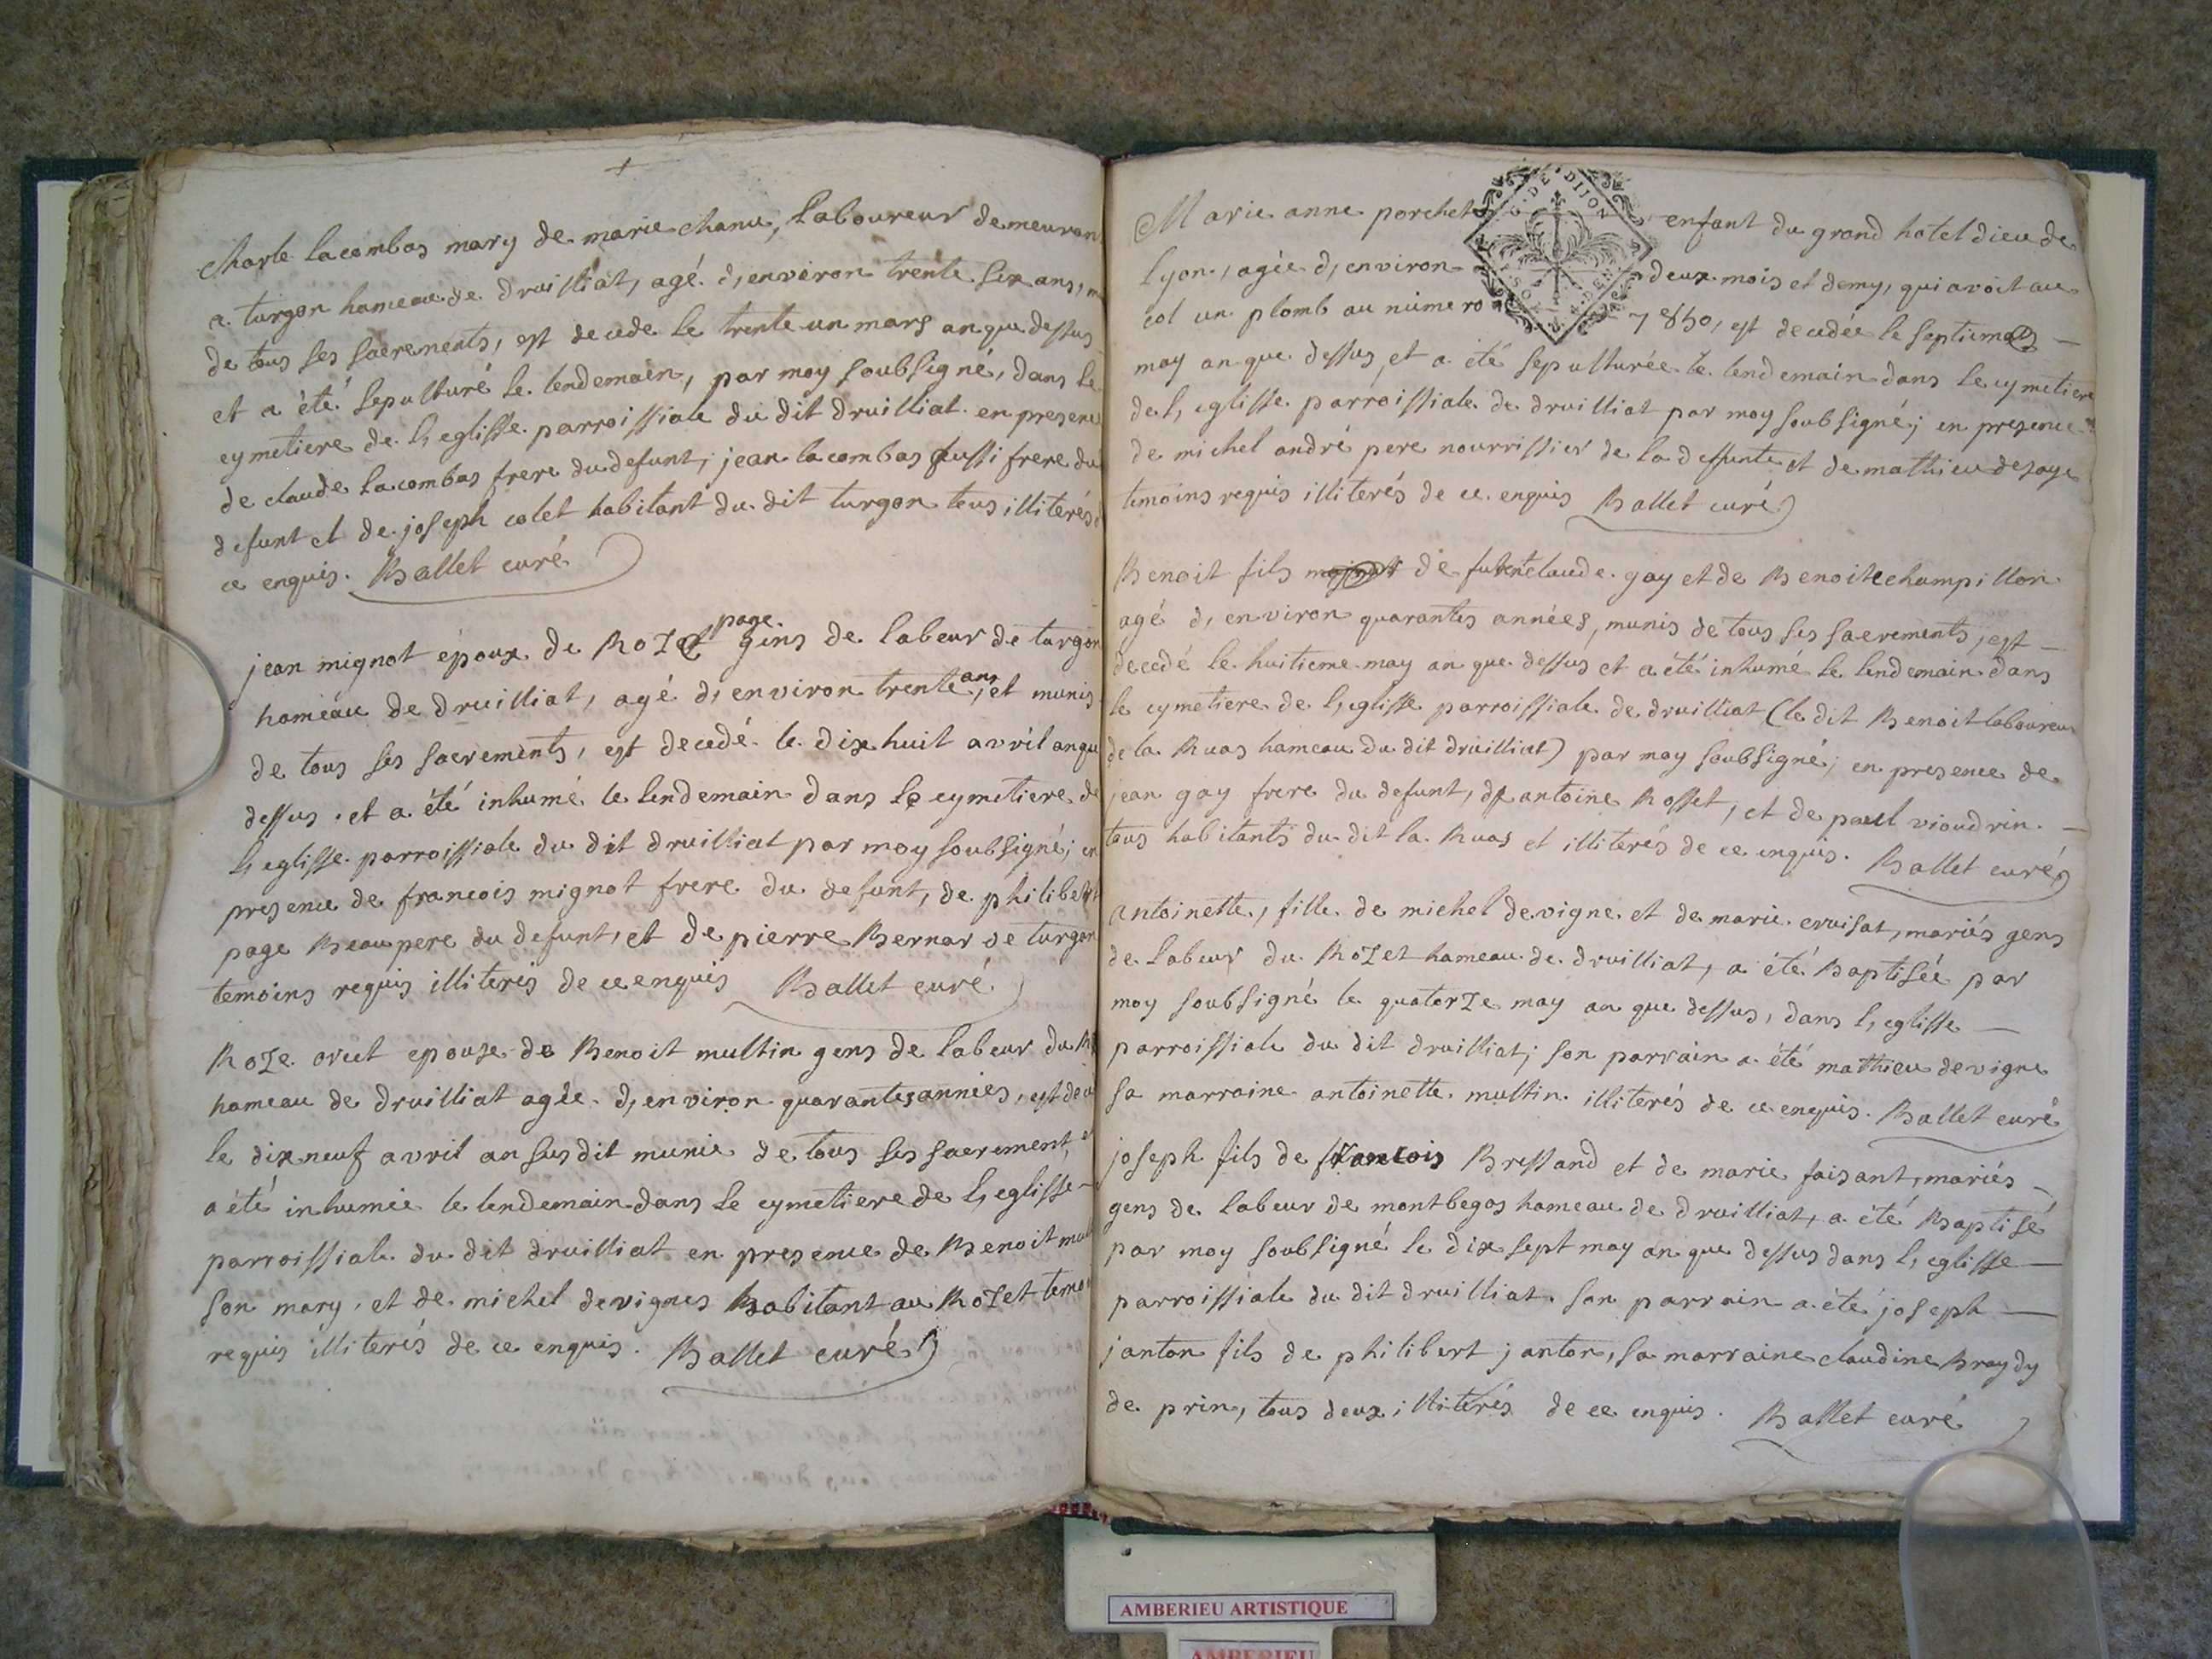 Charle lacombas mary de marie chanu, laboureur demeuran
a turgon hameau de druilliat, agé d, environ trente six ans, m
de tous ses sacrements, est decede le trente un mars an que dessus
et a été sepulturé le lendemain, par moy soubsigné, dans le
cymetiere de l, eglisse parroissiale du dit druilliat en presence
de claude lacombas frere du defunt, jean lacombas aussi frere du
defunt et de joseph colet habitant du dit turgon tous illiterés
ce enquis. Ballet curé
page
jean mignot époux de Roze gens de labeur de turgon
ans
hameau de druilliat, agé d, environ trente, et munis
de tous ses sacrements, est decedé le dix huit avril an que
dessus. et a été inhumé le lendemain dans le cymetiere de
l, eglisse parroissiale du dit druilliat par moy soubsigné; en
presence de francois mignot frere du defunt, de philibert
page Beaupere du defunt, et de pierre Bernar de turgon
temoins requis illiteres de ce enquis Ballet curé
Roze orset epouse de Benoit multin gens de labeur du
hameau de druilliat agée d, environ quarantes années, est
le dix neuf avril an susdit munie de tous ses sacrement, et
a été inhumée le lendemain dans le cymetiere de l, eglisse
parroissiale du dit druilliat en presence de Benoit mul
son mary, et de michel devignes habitant au Rozet temo
requis illiterés de ce enquis. Ballet curé
Marie anne porchet enfant du grand hotel dieu de
G. DE DIJON
lyon, agée d, environ deux mois et demy, qui avoit au
col un plomb au numero 7850, est decedée le septieme
may an que dessus, et a été sepulturée le lendemain dans le cymetiere
de l, eglisse parroissiale de druilliat par moy soubsigné; en presence
de michel andré pere nourrissier de la deffunte et de mathieu desaye
temoins requis illiterés de ce enquis Ballet curé
Benoit fils de claude gay et de Benoite champillon
agé d, environ quarantes années, munis de tous ses sacrements, est
decedé le huitieme may an que dessus et a été inhumé le lendemain dans
le cymetiere de l, eglisse parroissiale de druilliat (le dit Benoit laboureur
de la Ruas hameau du dit druilliat) par moy soubsigné; en presence de
jean gay frere du defunt, de antoine Rosset, et de paul vioudrin.
tous habitants du dit la Ruas et illiterés de ce enquis. Ballet curé
antoinette, fille de michel devigne et de marie cruisat, mariés gens
de labeur du Rozet hameau de druilliat, a été Baptisée par
moy soubsigné le quatorze may an que dessus, dans l, eglisse
parroissiale du dit druilliat; son parrain a été mathieu devigne
sa marraine antoinette multin illiterés de ce enquis. Ballet curé
joseph fils de francois Bressand et de marie faisant, mariés
gens de labeur de montbegos hameau de druilliat, a été Baptisé
par moy soubsigné le dix sept may an que dessus dans l, eglisse
parroissiale du dit druilliat. son parrain a été joseph
janton fils de philibert janton, sa marraine claudine Braydy
de prin, tous deux illiterés de ce enquis. Ballet curé
AMBERIEU ARTISTIQUE
AMBERIEU